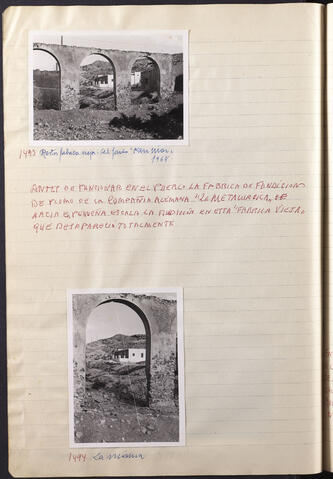 1493 Restos fabrica vieja
1968
ANTES DE FUNCIONAR EN EL PUEBLO LA FABRICA DE FUNDICION
DE PLOMO DE LA COMPAÑIA ALEMANA "LA METALURGICA", SE
HACIA EN PEQUEÑA ESCALA LA FUNDICIÓN EN ESTA "FABRICA VIEJA,
QUE DESAPARECIO TOTALMENTE
1494 La misma